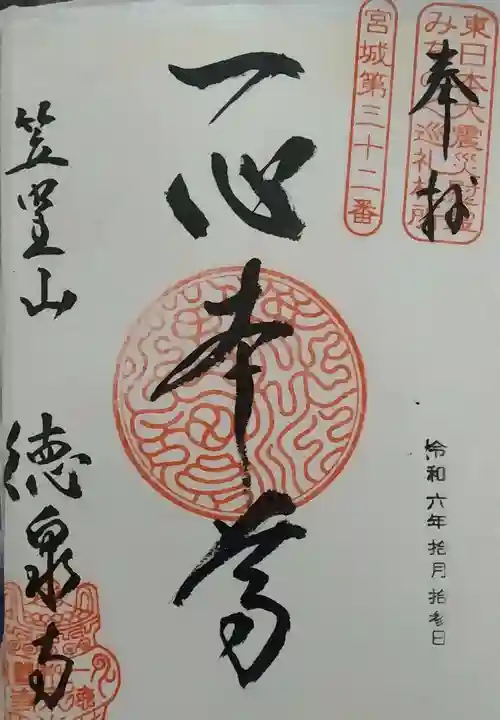 東日本大震災
みちのく巡礼札所
奉拝
宮城第三十二番
一心本尊
令和六年拾月拾参日
笠堂山 徳泉寺